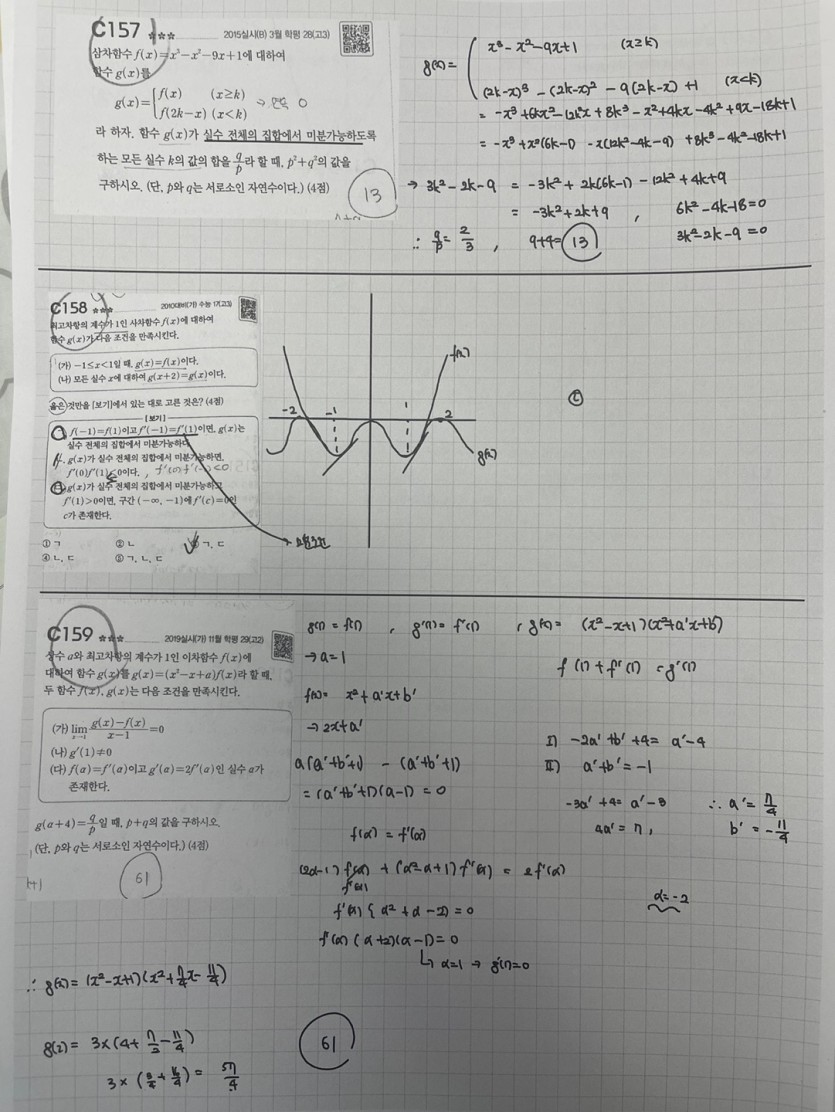 C157 ★★★ 2015실시(B) 3월 학평 28(고3)
삼차함수 f(x)=x³-x²-9x+1에 대하여
함수 g(x)를
g(x)={f(x) (x≥k)
f(2k-x) (x<k)
라 하자. 함수 g(x)가 실수 전체의 집합에서 미분가능하도록
하는 모든 실수 k의 값의 합을 q/p라 할 때, p²+q²의 값을
구하시오. (단, p와 q는 서로소인 자연수이다.) (4점)
13
g(x)= x³-x²-9x+1 (x≥k)
(2k-x)³-(2k-x)²-9(2k-x)+1 (x<k)
= -x³+6kx²-12k²x+8k³-x²+4kx-4k²+9x-18k+1
= -x³+x²(6k-1) -x(12k²-4k-9) +8k³-4k²-18k+1
→ 3k²-2k-9 = -3k²+2k(6k-1)-12k²+4k+9
= -3k²+2k+9, 6k²-4k-18=0
∴ q/p = 2/3, 9+4= 13 3k²-2k-9=0
C158 ★★★ 2010대비(가) 수능 17(고3)
최고차항의 계수가 1인 사차함수 f(x)에 대하여
함수 g(x)가 다음 조건을 만족시킨다.
(가) -1≤x<1일 때, g(x)=f(x)이다.
(나) 모든 실수 x에 대하여 g(x+2)=g(x)이다.
옳은 것만을 [보기]에서 있는 대로 고른 것은? (4점)
[보기]
ㄱ. f(-1)=f(1)이고 f'(-1)=f'(1)이면, g(x)는
실수 전체의 집합에서 미분가능하다.
ㄴ. g(x)가 실수 전체의 집합에서 미분가능하면,
f'(0)f'(1)<0이다.
ㄷ. g(x)가 실수 전체의 집합에서 미분가능하고
f'(1)>0이면, 구간 (-∞, -1)에 f'(c)=0인
c가 존재한다.
① ㄱ ② ㄴ ③ ㄱ, ㄷ
④ ㄴ, ㄷ ⑤ ㄱ, ㄴ, ㄷ
f(x)
-2 -1 1 2
g(x)
C159 ★★★ 2019실시(가) 11월 학평 29(고2)
상수 a와 최고차항의 계수가 1인 이차함수 f(x)에
대하여 함수 g(x)를 g(x)=(x²-x+a)f(x)라 할 때,
두 함수 f(x), g(x)는 다음 조건을 만족시킨다.
(가) lim x→1 g(x)-f(x)/x-1=0
(나) g'(1)≠0
(다) f(α)=f'(α)이고 g'(α)=2f'(α)인 실수 α가
존재한다.
g(α+4)=q/p일 때, p+q의 값을 구하시오.
(단, p와 q는 서로소인 자연수이다.) (4점)
61
g(1)=f(1), g'(1)=f'(1), g(x)= (x²-x+1)(x²+a'x+b')
→ a=1 f(1)+f'(1)=g'(1)
f(x)= x²+a'x+b'
→ 2x+a'
a(a'+b'+1) - (a'+b'+1)
= (a'+b'+1)(a-1)=0
f(α)=f'(α)
(2α-1)f(α)+(α²-α+1)f'(α)=2f'(α)
f'(α)
f'(α){α²+α-2}=0
f'(α)(α+2)(α-1)=0
↳ α=1 → g'(1)=0
I) -2a'+b'+4= a'-4
II) a'+b'=-1
-3a'+4= a'-3 ∴ a'=7/4
4a'=7, b'=-11/4
α=-2
∴ g(x)= (x²-x+1)(x²+7/4x-11/4)
g(2)= 3×(4+7/2-11/4)
3×(5/4+14/4)= 57/4
61